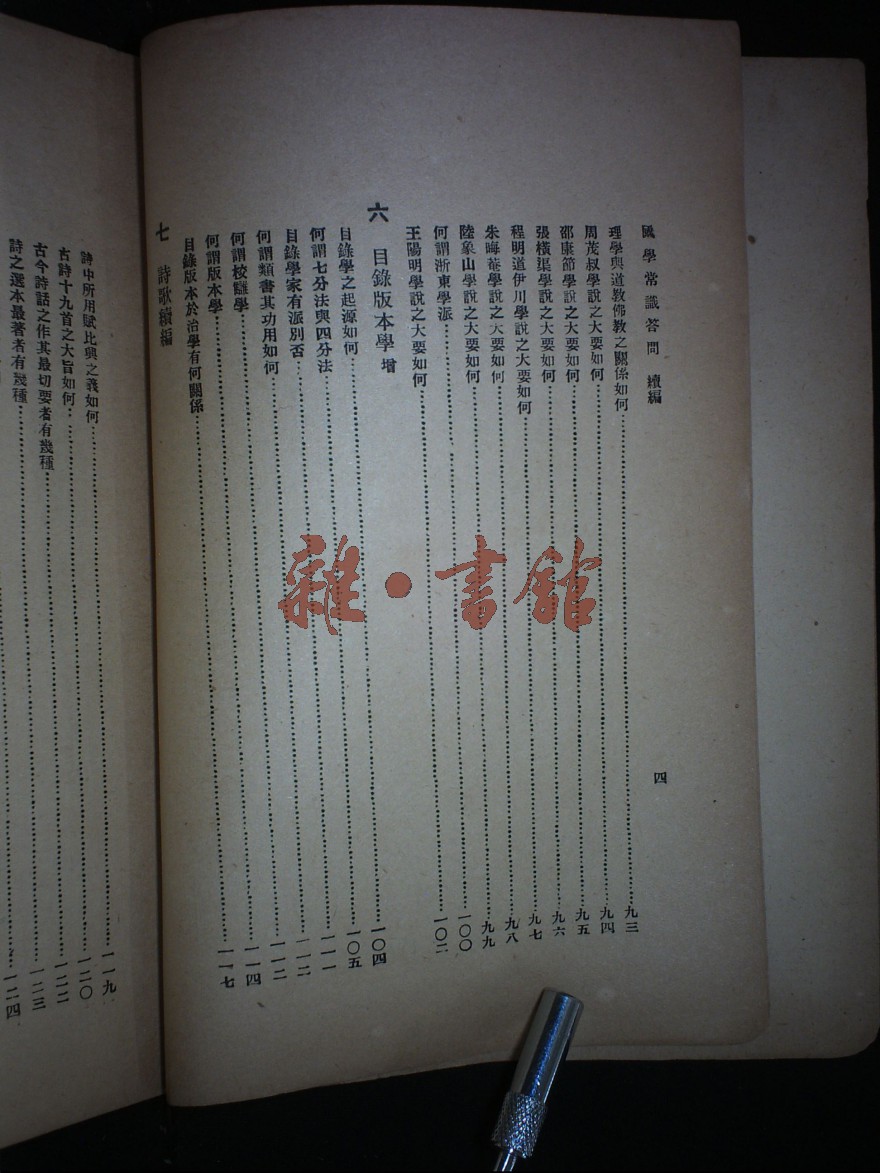 國學常識答問 續編 四
理學與道教佛教之關係如何……九三
周茂叔學說之大要如何……九四
邵康節學說之大要如何……九五
張橫渠學說之大要如何……九六
程明道伊川學說之大要如何……九七
朱晦菴學說之大要如何……九八
陸象山學說之大要如何……九九
何謂浙東學派……一〇〇
王陽明學說之大要如何……一〇二
六 目錄版本學 增
目錄學之起源如何……一〇四
何謂七分法與四分法……一〇五
目錄學家有派別否……一一一
何謂類書其功用如何……一一二
何謂校讎學……一一二
何謂版本學……一一四
目錄版本於治學有何關係……一一七
七 詩歌續編
詩中所用賦比興之義如何……一一九
古詩十九首之大旨如何……一二〇
古今詩話之作其最切要者有幾種……一二二
詩之選本最著者有幾種……一二三
一二四
雜·書館